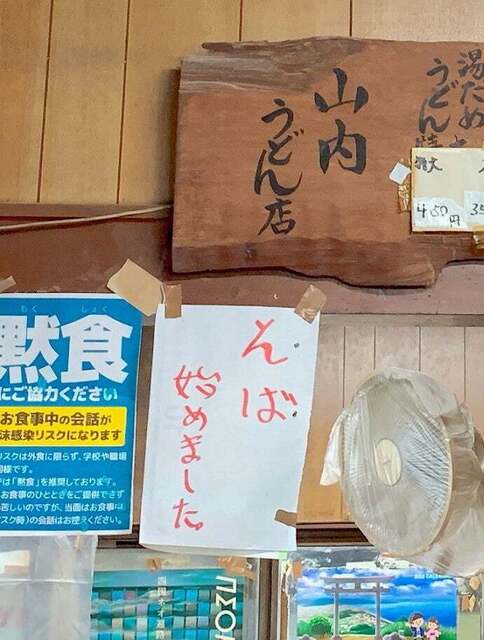 山内
うどん店
湯だめ
うどん
450円
35
そば
始めました。
もく しょく
黙食
にご協力ください
お食事中の会話が
沫感染リスクになります
リスクは外食に限らず、学校や職場
同様です。
では「黙食」を推奨しております。
お食事のひとときをご提供できず
苦しいのですが、当面はお食事中
スク時)の会話はお控えください。